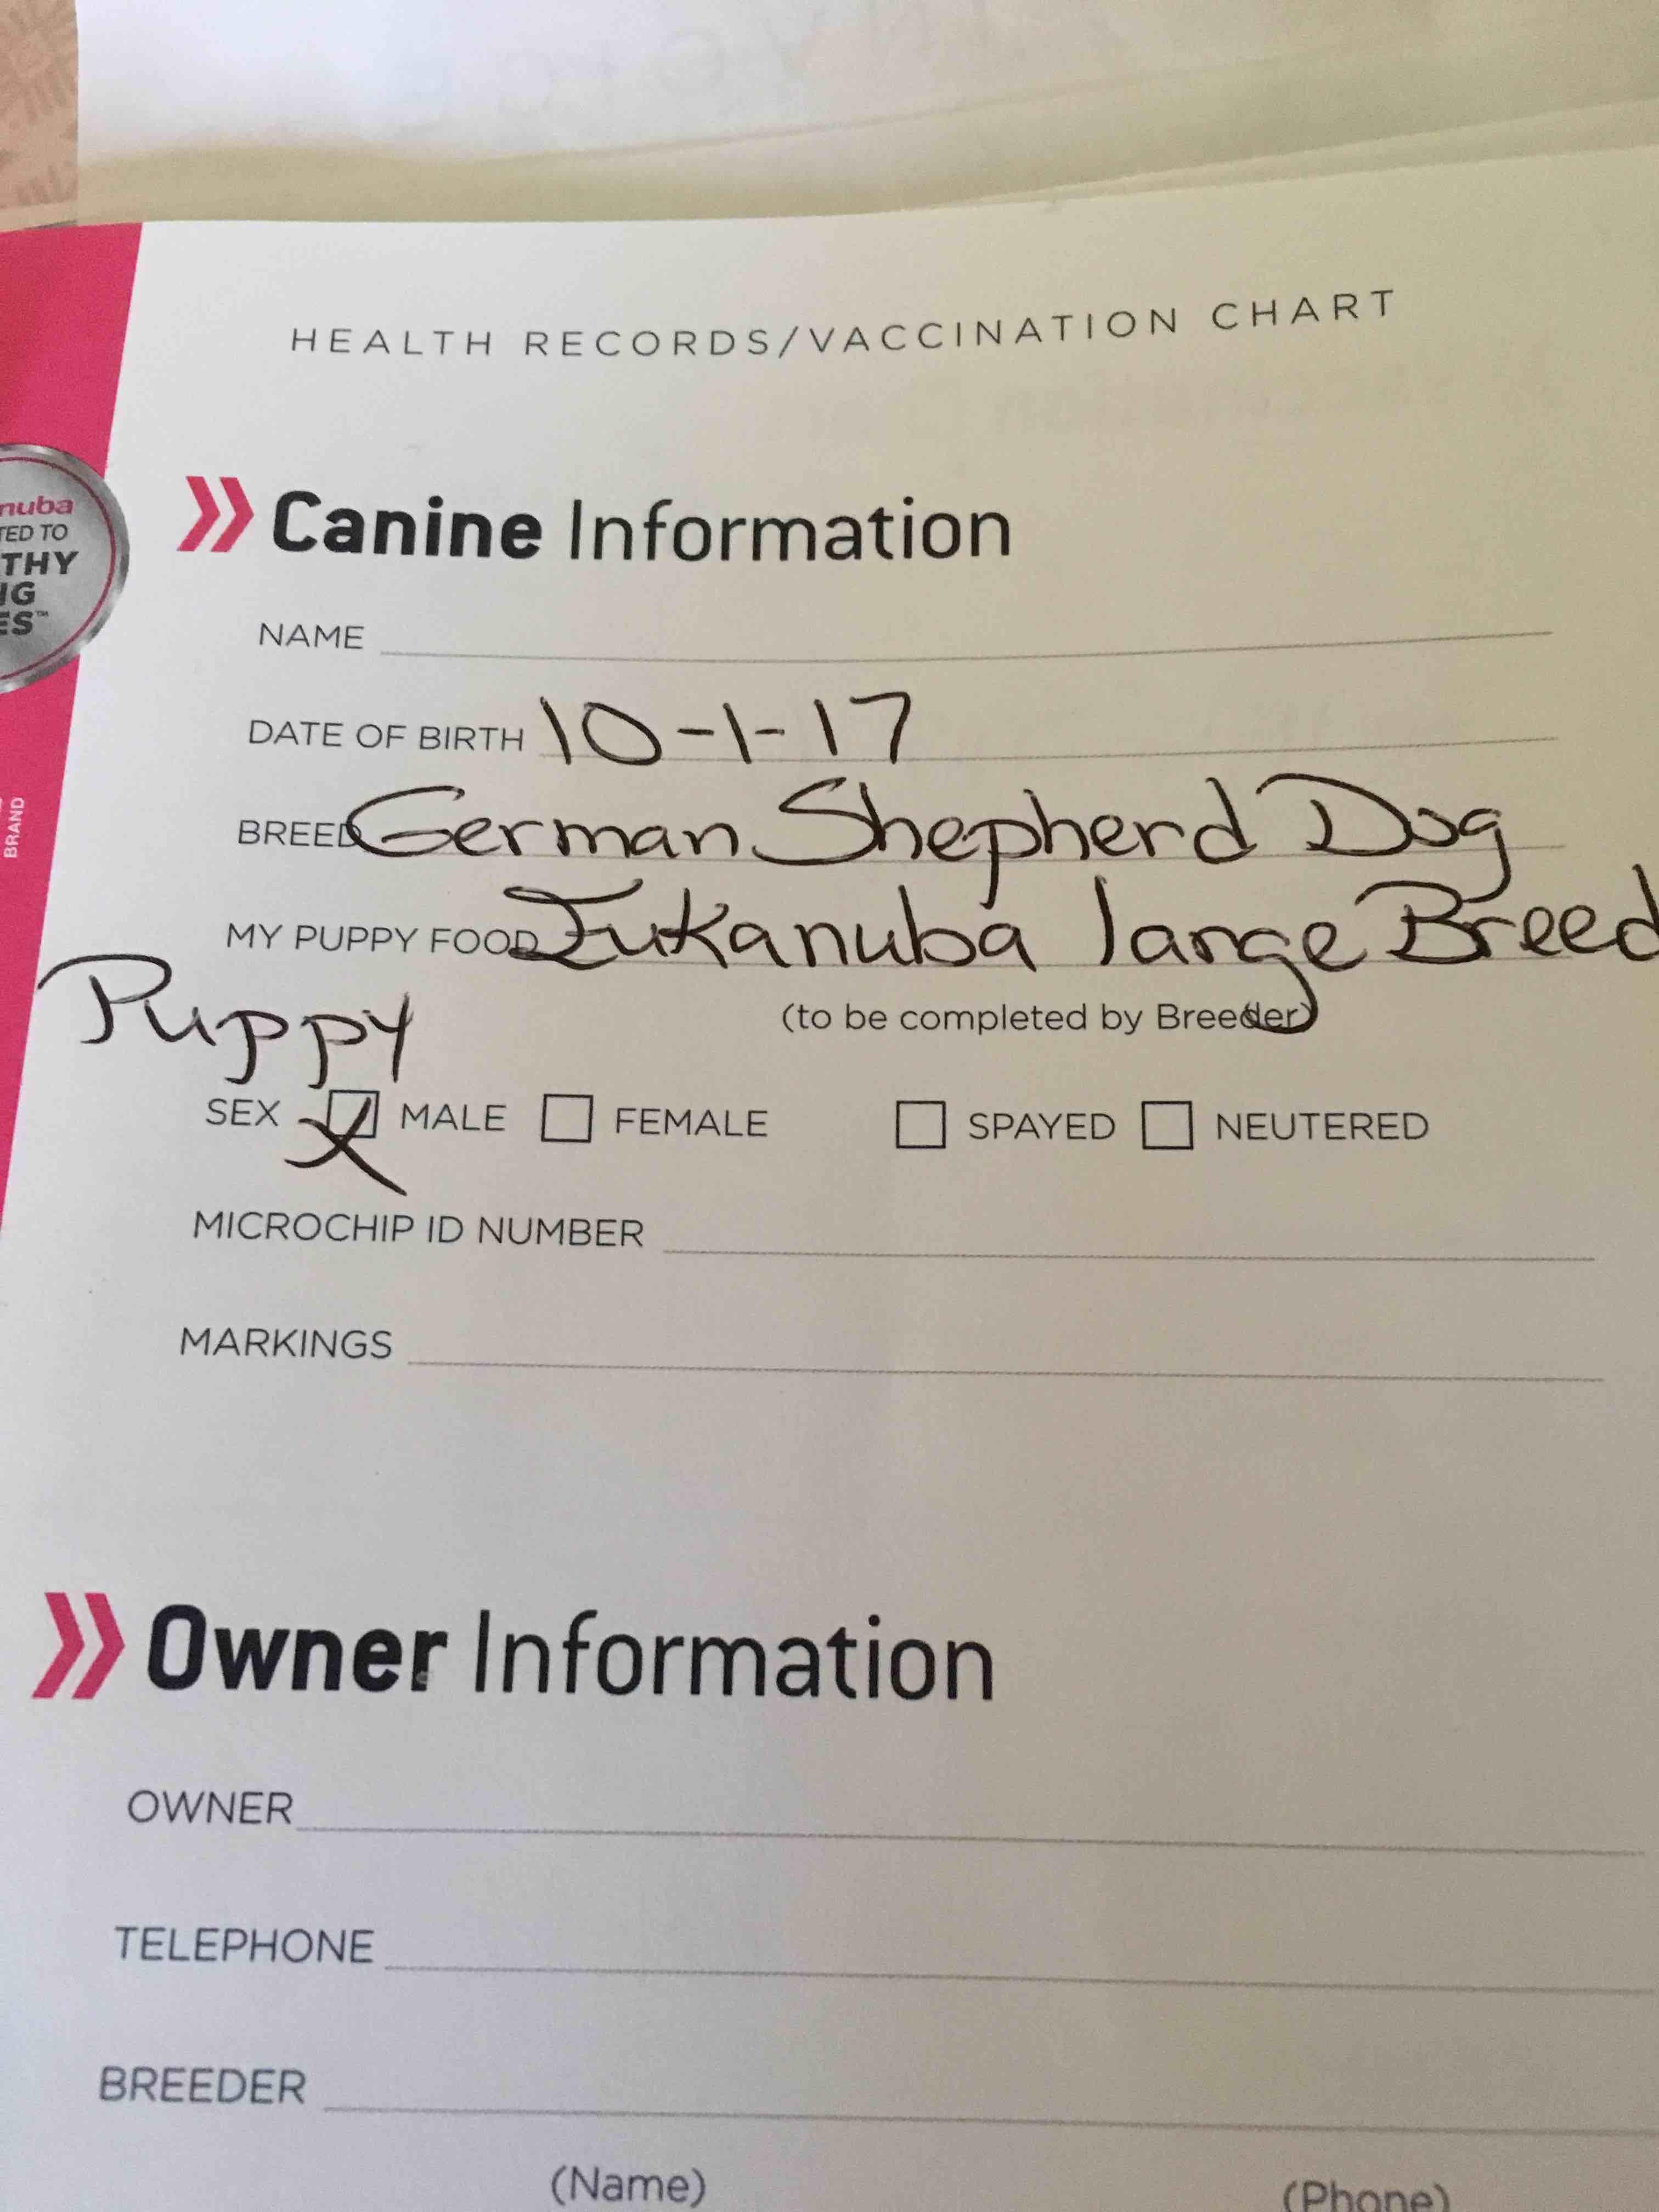 HEALTH RECORDS/VACCINATION CHART
nuba
TED TO
THY
NG
ES™
BRAND
Canine Information
NAME
DATE OF BIRTH 10-1-17
BREED German Shepherd Dog
MY PUPPY FOOD Eukanuba large Breed
Puppy
(to be completed by Breeder)
SEX X MALE FEMALE SPAYED NEUTERED
MICROCHIP ID NUMBER
MARKINGS
Owner Information
OWNER
TELEPHONE
BREEDER
(Name) (Phone)